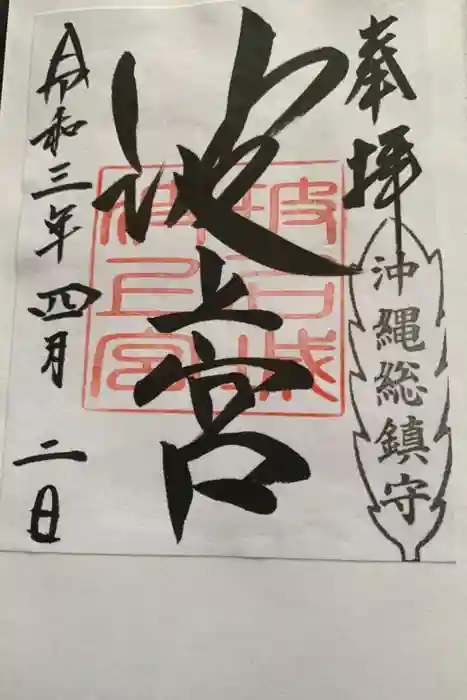 奉拝
沖縄総鎮守
波上宮
令和三年四月二日